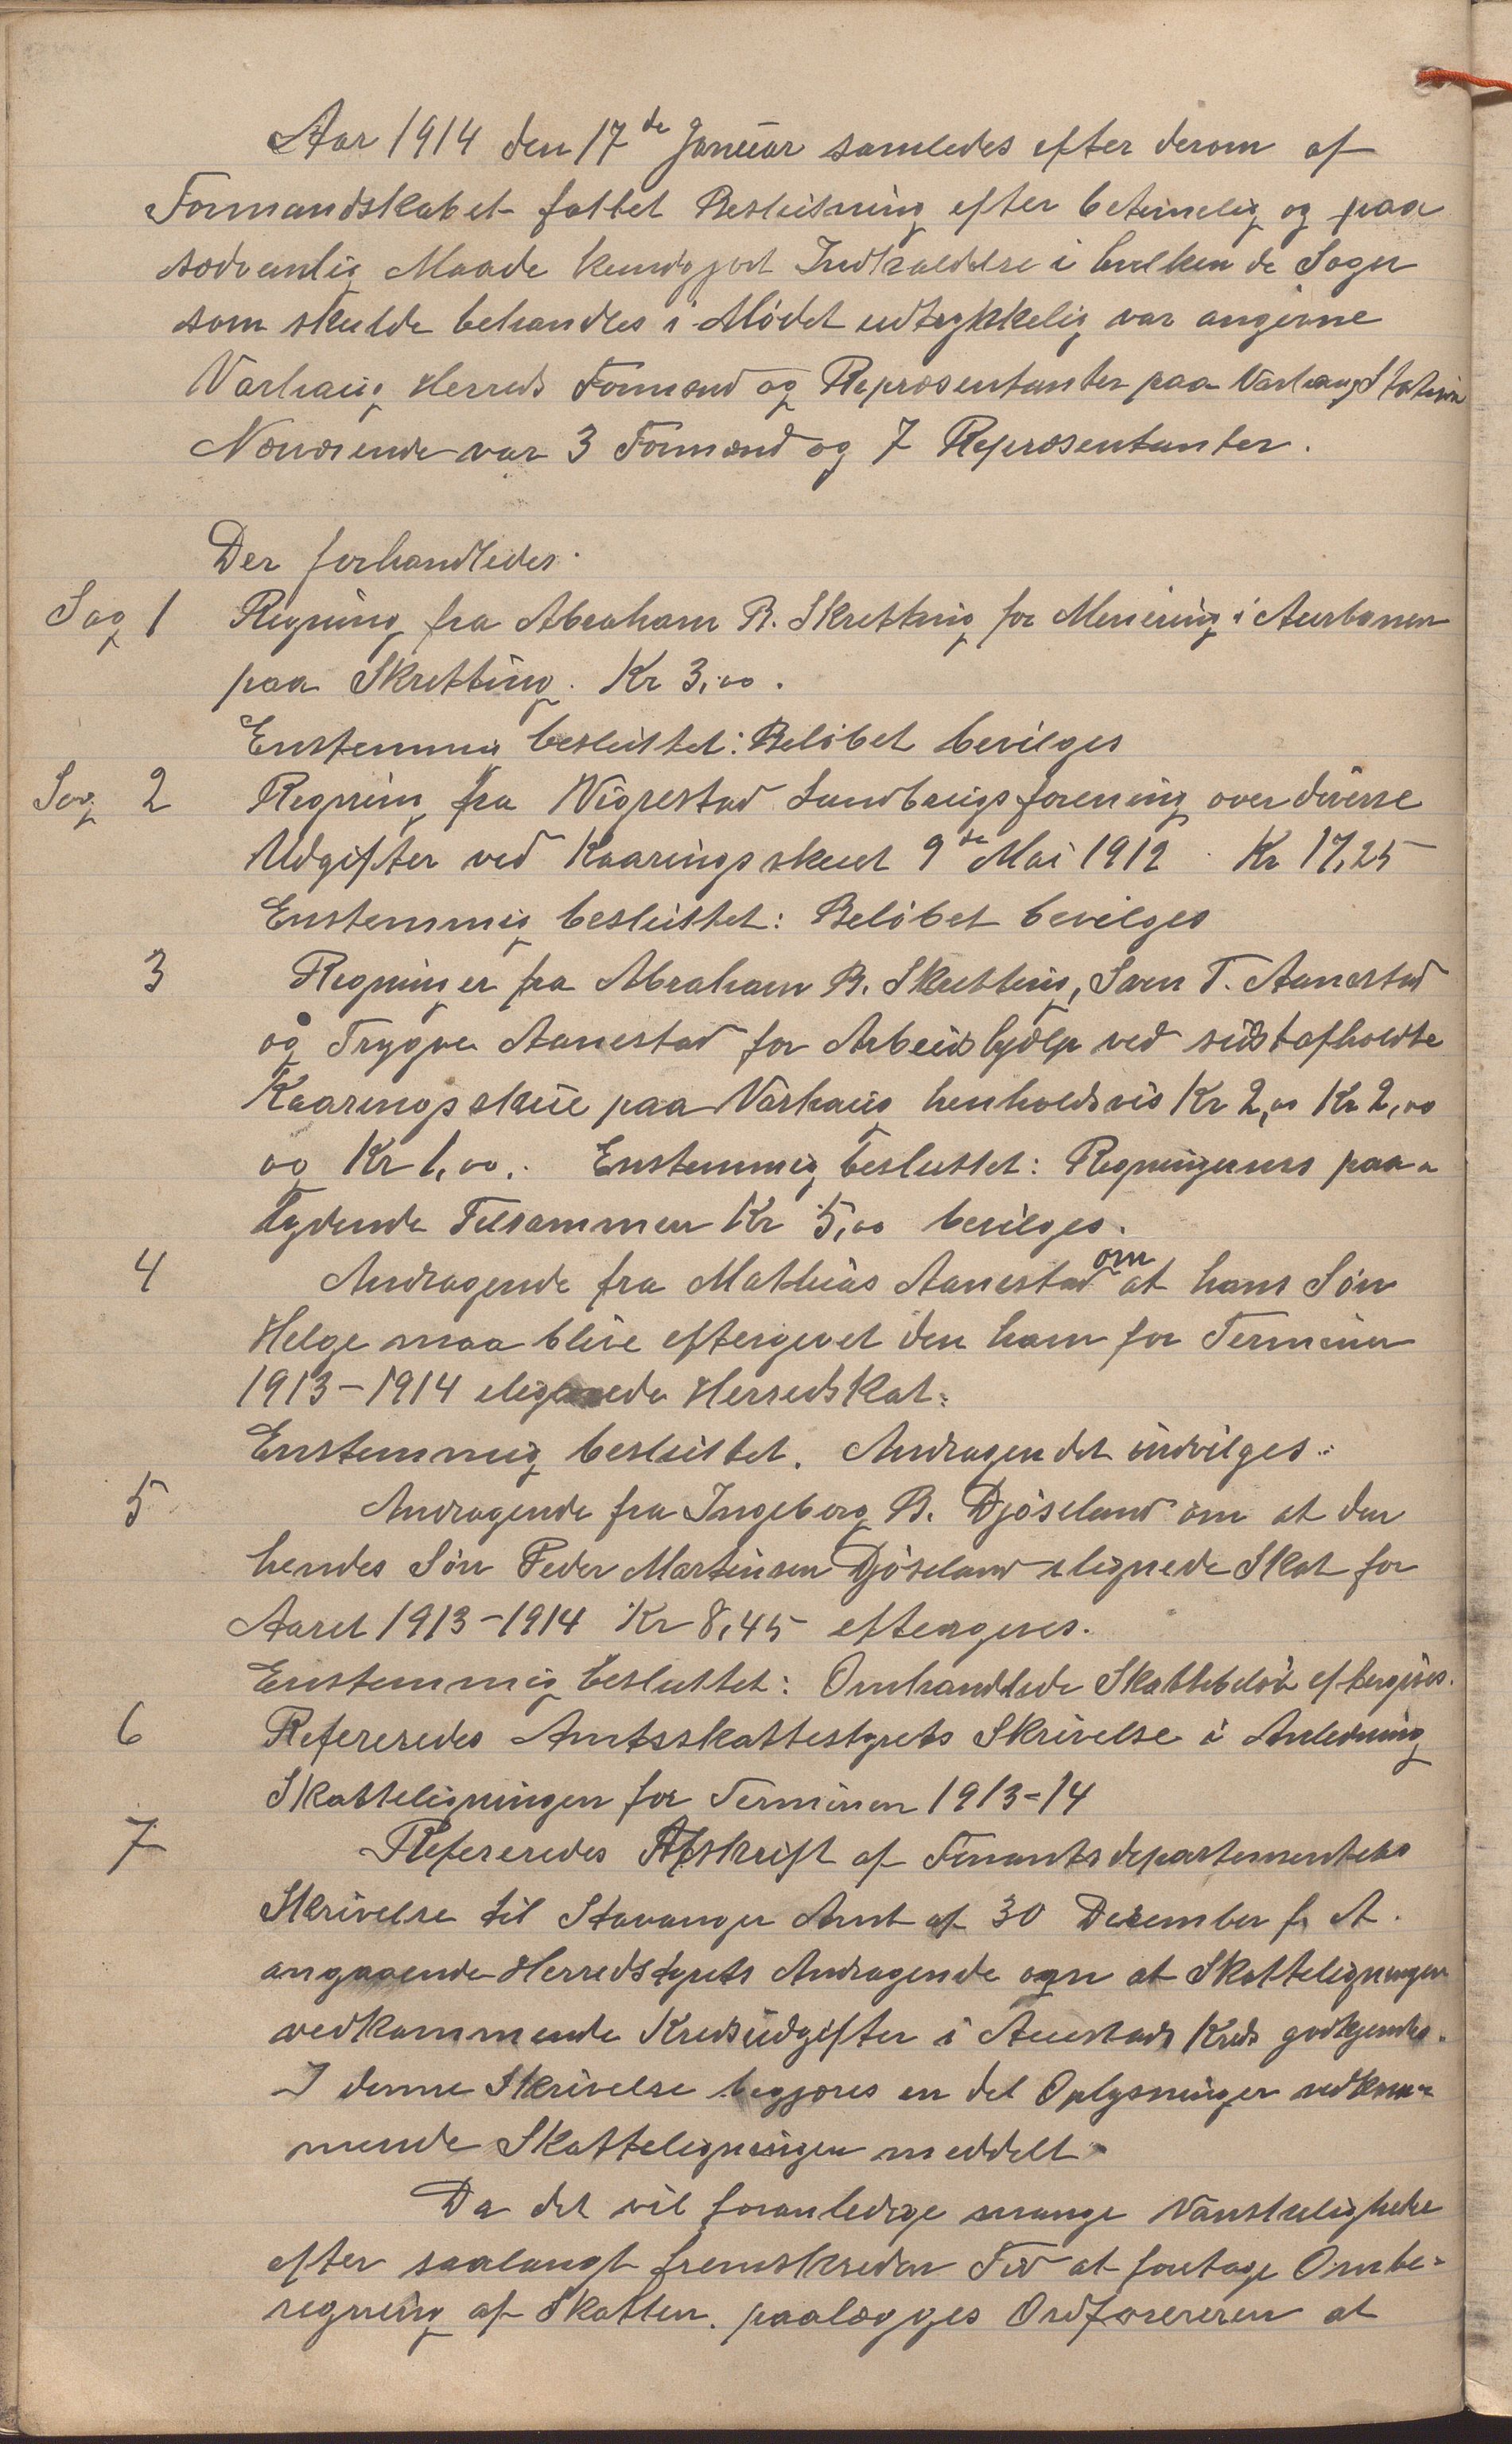 Aar 1914 den 17de Januar samledes efter derom af
Formandskabet fattet Beslutning efter betimelig og paa
sædvanlig Maade kundgjort Indkaldelse i hvilken de Sager
som skulde behandles i Mødet udtrykkelig var angivne
Varhaug Herreds Formænd og Repræsentanter paa Varhaug Station
Nærværende var 3 Formænd og 7 Repræsentanter.
Der forhandledes.
Sag 1 Regning fra Abraham B. Skretting for Menering i Aurbanen
paa Skretting. Kr 3,00.
Enstemmig besluttet: Beløbet bevilges
Sag 2 Regning fra Vigrestad Landbrugsforening over diverse
Udgifter ved Kaaringsskuet 9de Mai 1912. Kr 17,25
Enstemmig besluttet: Beløbet bevilges
3 Regninger fra Abraham B. Skretting, Sven T. Aanestad
og Trygve Aanestad for Arbeidshjælp ved sidstafholdte
Kaaringsskue paa Varhaug henholdsvis Kr 2,00 Kr 2,00
og Kr 1,00. Enstemmig besluttet: Regningernes paa-
lydende Tilsammen Kr 5,00 bevilges.
4 Andragende fra Mathias Aanestad om at hans Søn
Helge maa blive eftergivet den ham for Terminen
1913-1914 ilignede Herredskat.
Enstemmig besluttet. Andragendet indvilges.
5 Andragende fra Ingeborg B. Djøseland om at den
hendes Søn Peder Martinsen Djøseland ilignede Skat for
Aaret 1913-1914 Kr 8,45 eftergives.
Enstemmig besluttet: Omhandlede Skattebeløb eftergives.
6 Refereredes Amtsskattestyrets Skrivelse i Anledning
Skatteligningen for Terminen 1913-14
7 Refereredes Afskrift af Finantsdepartementets
Skrivelse til Stavanger Amt af 30 Dezember f. A.
angaaende Herredstyrets Andragende om at Skatteligningen
vedkommende Kredsudgifter i Auestads Kreds godkjendes.
I denne Skrivelse begjæres en del Oplysninger vedkom-
mende Skatteligningen meddelt.
Da det vil foranledige mange Vanskeligheder
efter saalangt fremskreden Tid at foretage Ombe-
regning af Skatten, paalægges Ordføreren at